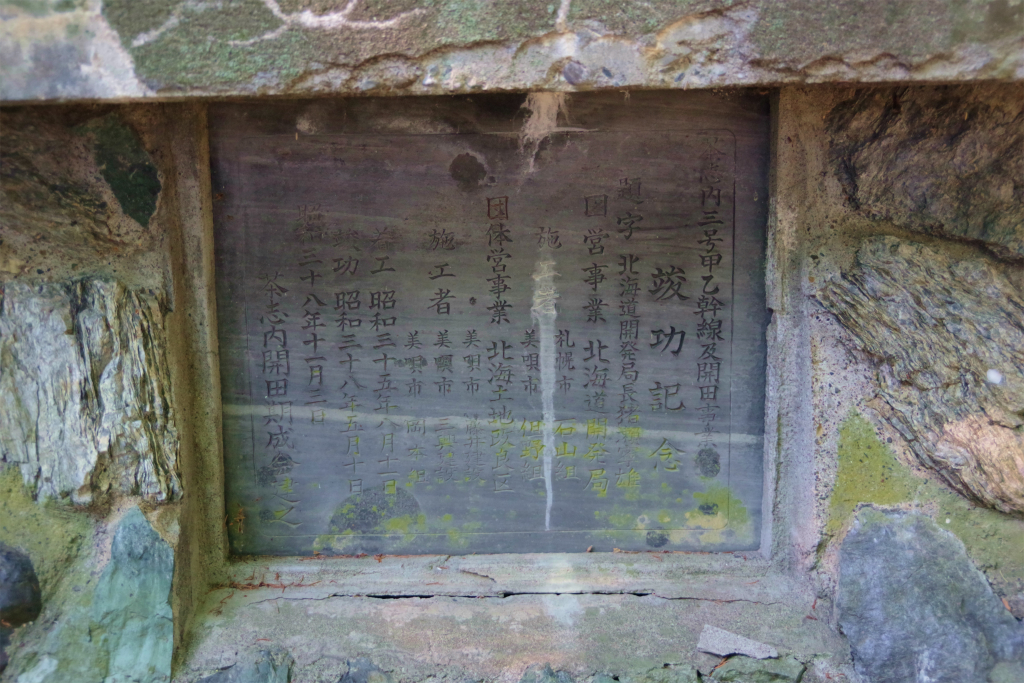 茶志内三号甲乙幹線及開田事業
竣功記念
題字 北海道開発局長
国営事業 北海道開発局
施 札幌市 石山組
美唄市 組
団体営事業 北海土地改良区
美唄市
施工者 美唄市
美唄市
着工 昭和三十五年八月十一日
竣功 昭和三十八年五月十日
三十八年十一月三日
茶志内開田期成会 建之